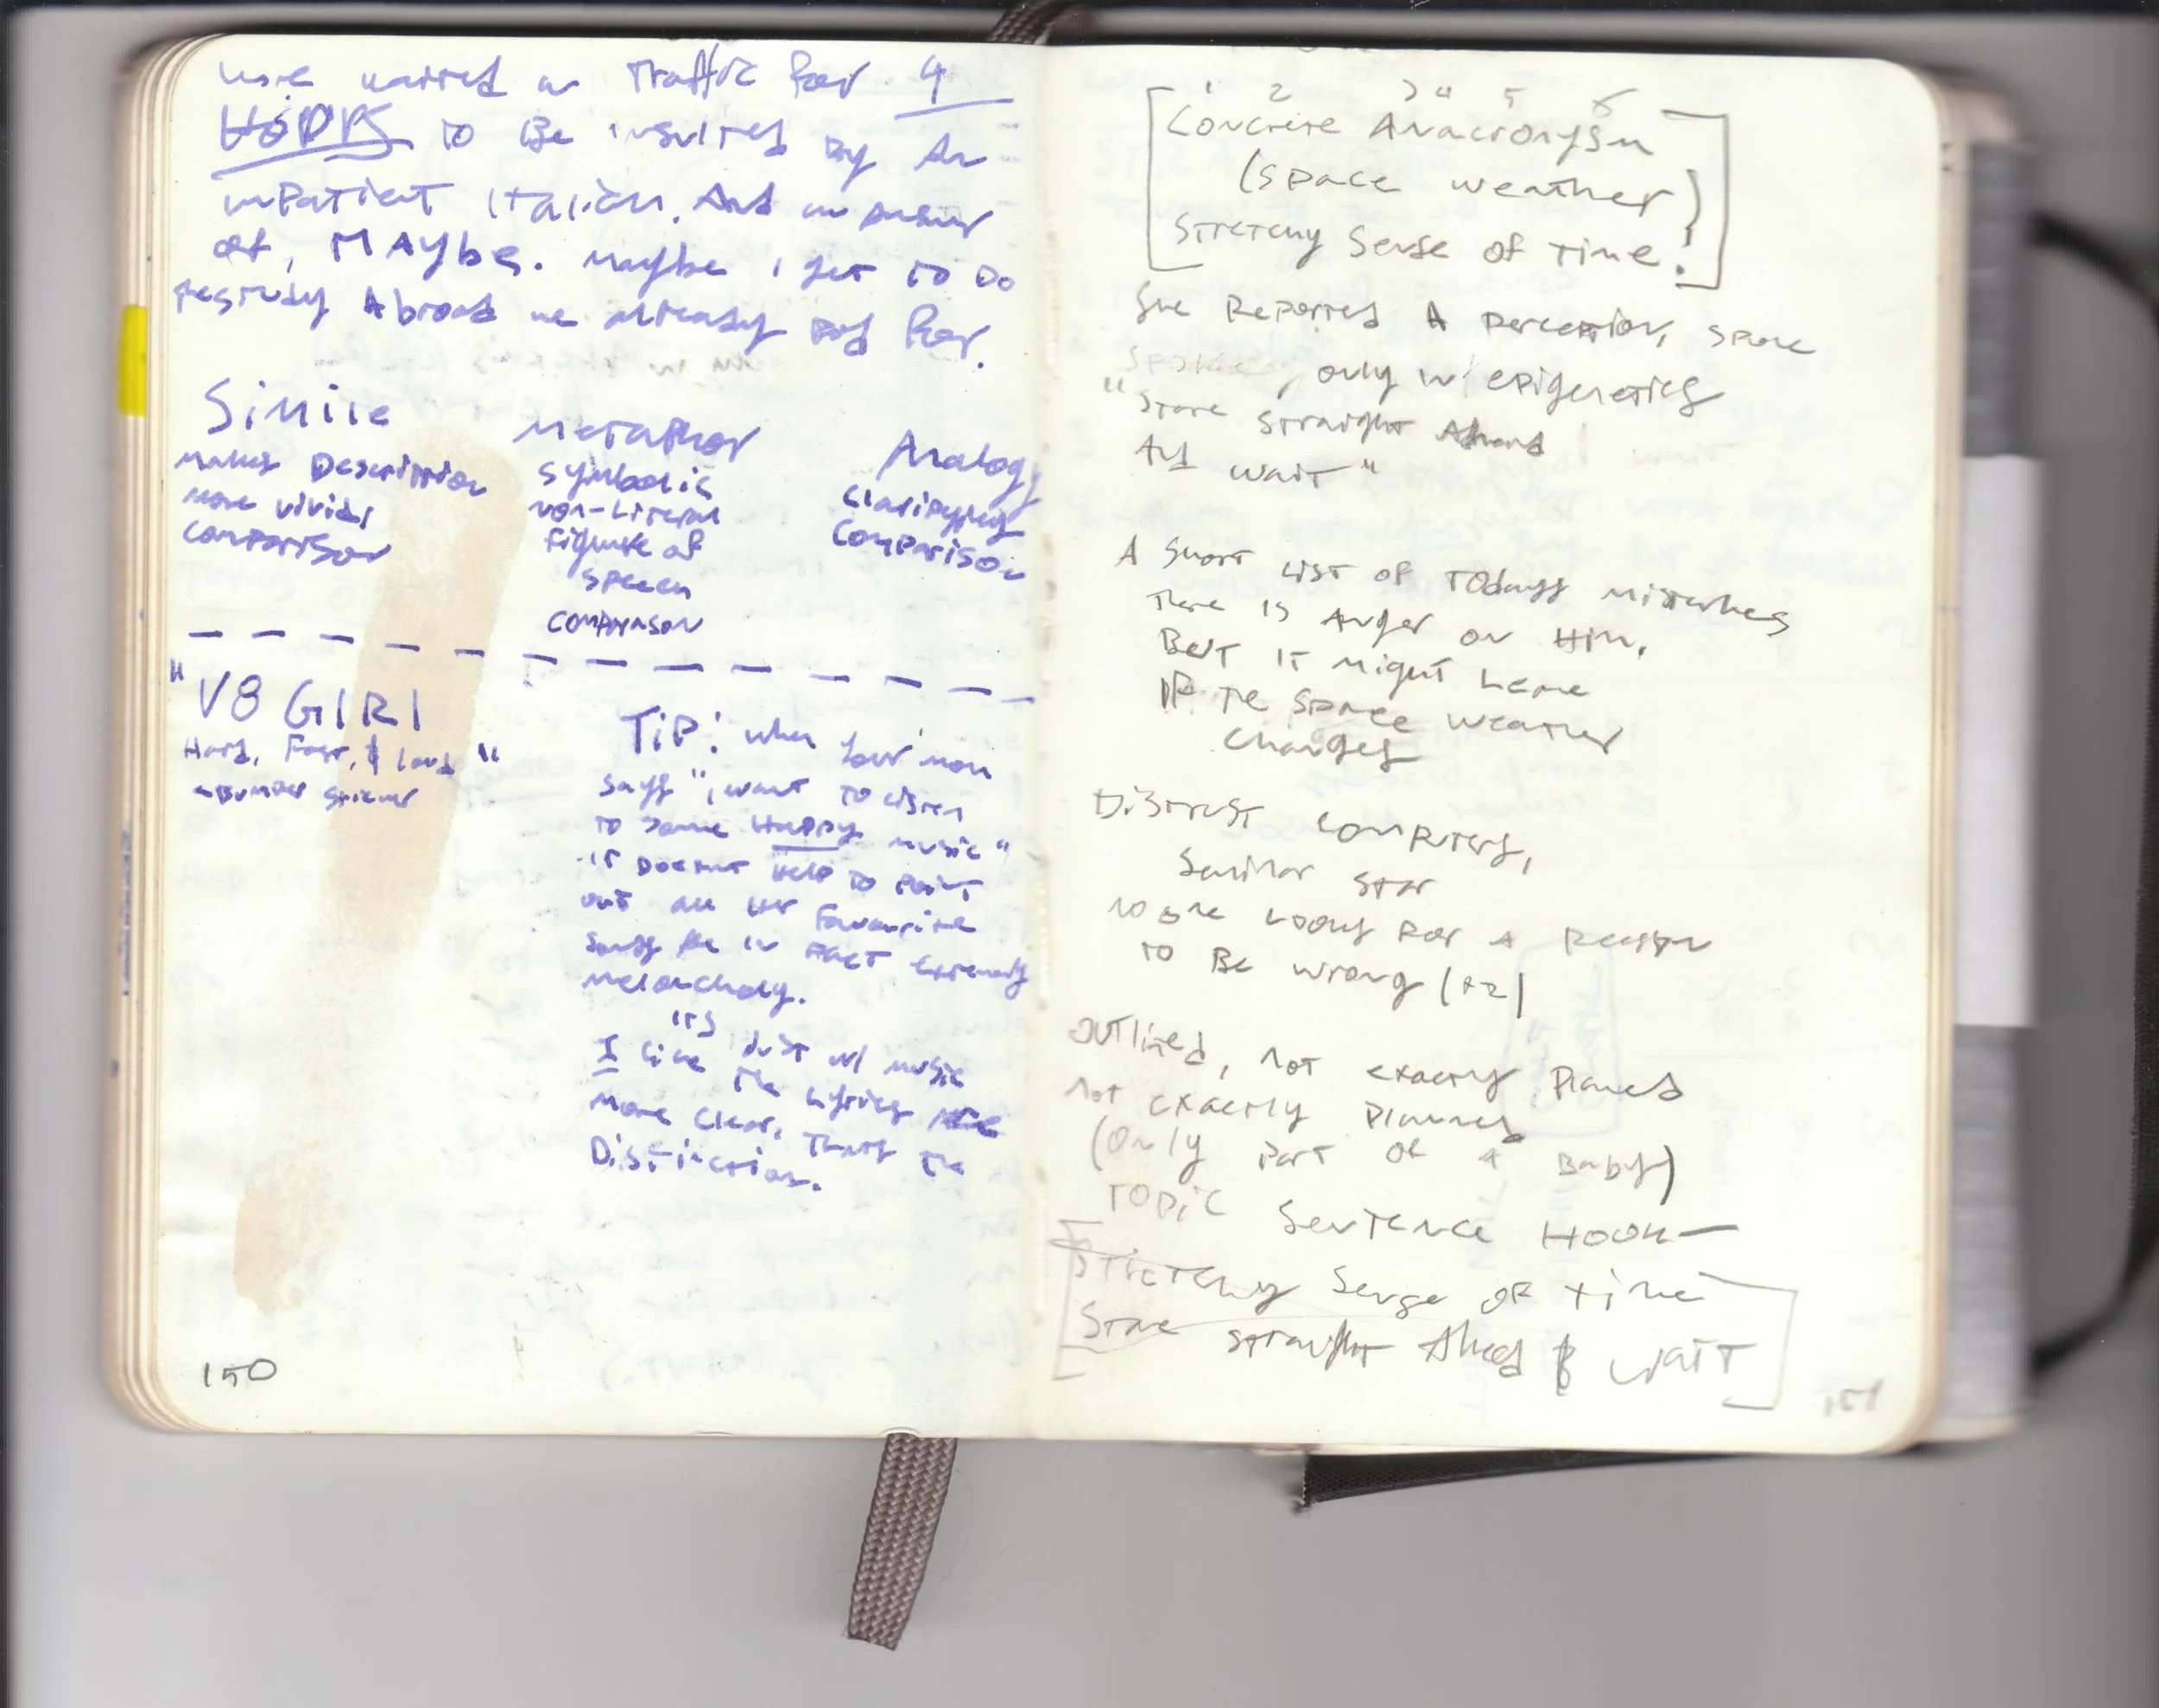 waited in Traffic for 4
HOURS to Be insulted by An
impatient italian. And an answer
of, MAYbe. Maybe i get to Do
Abroad we already pad for.
Simile
makes Description
more vivid,
comparison
Metaphor
Symbolic
non-Literal
figure of
speech
comparison
Analogy
Clarifying
Comparison
"V8 GIRl
Hard, Fast, & loud"
Bumper sticker
TiP: when your mom
says "i want to listen
to some Happy music"
it Doesnt Help to Point
out all Her Favourite
songs are in FAcT Extremely
melancholy.
its
I like just w/ music
The Lyrics are
More clear, Thats the
Distinction.
150
1 2 3 4 5 6
[Concrete Anacronysm
(space weather)
Stretchy Sense of Time.]
She Reported A perception, spoke
only w/ epigenetics
"Stare straight Ahead
And wait"
A Short List of Todays mistakes
There is Anger on Him,
But it Might Leave
IF The Space Weather
Changes
Distrust computers,
Similar star
no one Looks For A Reason
to Be wrong (x2)
OUTlined, not exactly Planed
not exactly Planned
(Only Part of A Baby)
TOPiC Sentence HOOK—
[Stretchy Sense of time
Stare straight Ahead & WAIT]
151